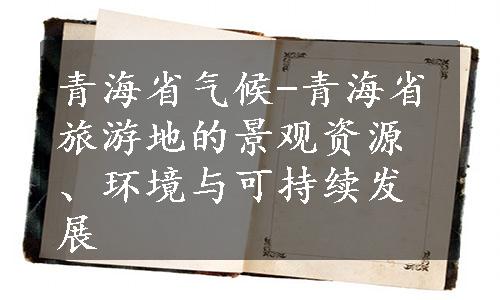 青海省气候-青海省
旅游地的景观资源
、环境与可持续发
展